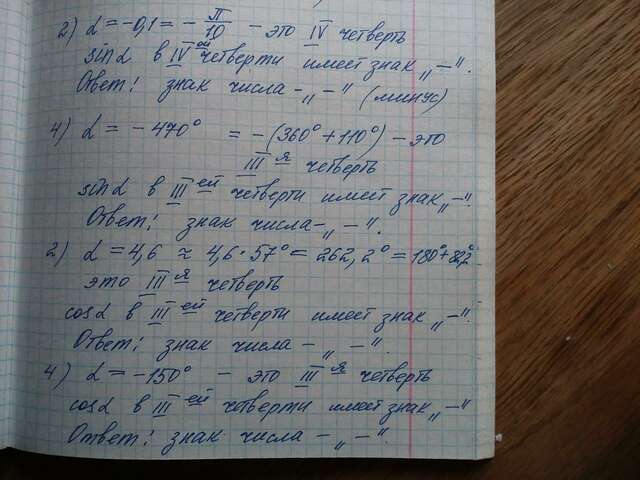 2) α = -0,1 = - π/10 - это IV четверть
sinα в IV ой четверти имеет знак „-".
Ответ: знак числа - „-" (минус)
4) α = -470° = -(360°+110°) - это
III я четверть
sinα в III ей четверти имеет знак „-"
Ответ: знак числа - „-".
2) α = 4,6 ≈ 4,6·57° = 262,2° = 180°+82,2°
это III я четверть
cosα в III ей четверти имеет знак „-".
Ответ: знак числа - „-".
4) α = -150° - это III я четверть
cosα в III ей четверти имеет знак „-"
Ответ: знак числа - „-".